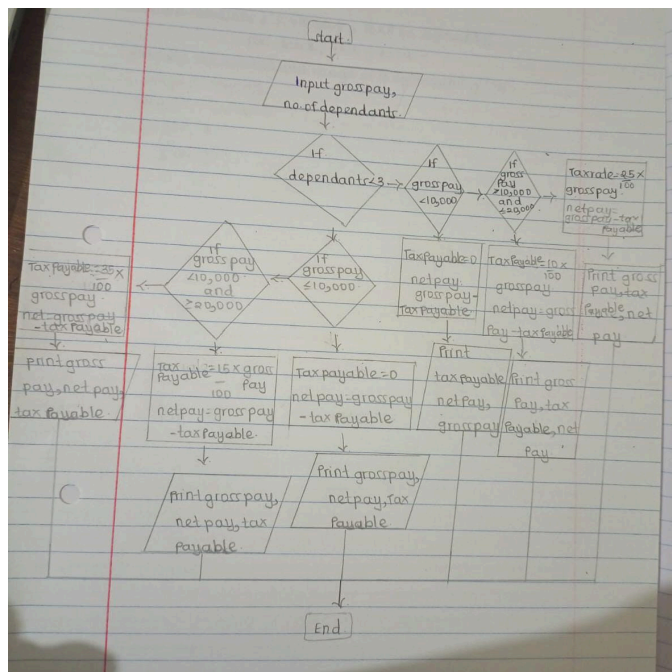 Start
Input grosspay,
no. of dependants
If
dependants<3
If
grosspay
<10,000
If
gross
Pay
>10,000
and
<20,000
Taxrate=25x
100
grosspay.
netpay-
grosspay-tax
Payable
Print gross
pay, tax
Payable, net
pay
TaxPayable=10x
100
grosspay
netpay=gross
Pay-taxpayable
Print gross
Pay, tax
Payable, net
Pay
TaxPayable=0
netpay
grosspay-
TaxPayable
Print
taxpayable
netpay,
grosspay
If
grosspay
≤10,000
If
grosspay
<10,000
and
>20,000
TaxPayable=35x
100
grosspay
net=grosspay
-taxpayable
print gross
pay, net pay,
tax Payable
Tax =15x gross
Payable Pay
100
netpay=grosspay
-taxPayable.
print grosspay,
net pay, tax
Payable
Taxpayable=0
netpay=grosspay
-taxPayable
Print grosspay,
netpay, Tax
Payable
End